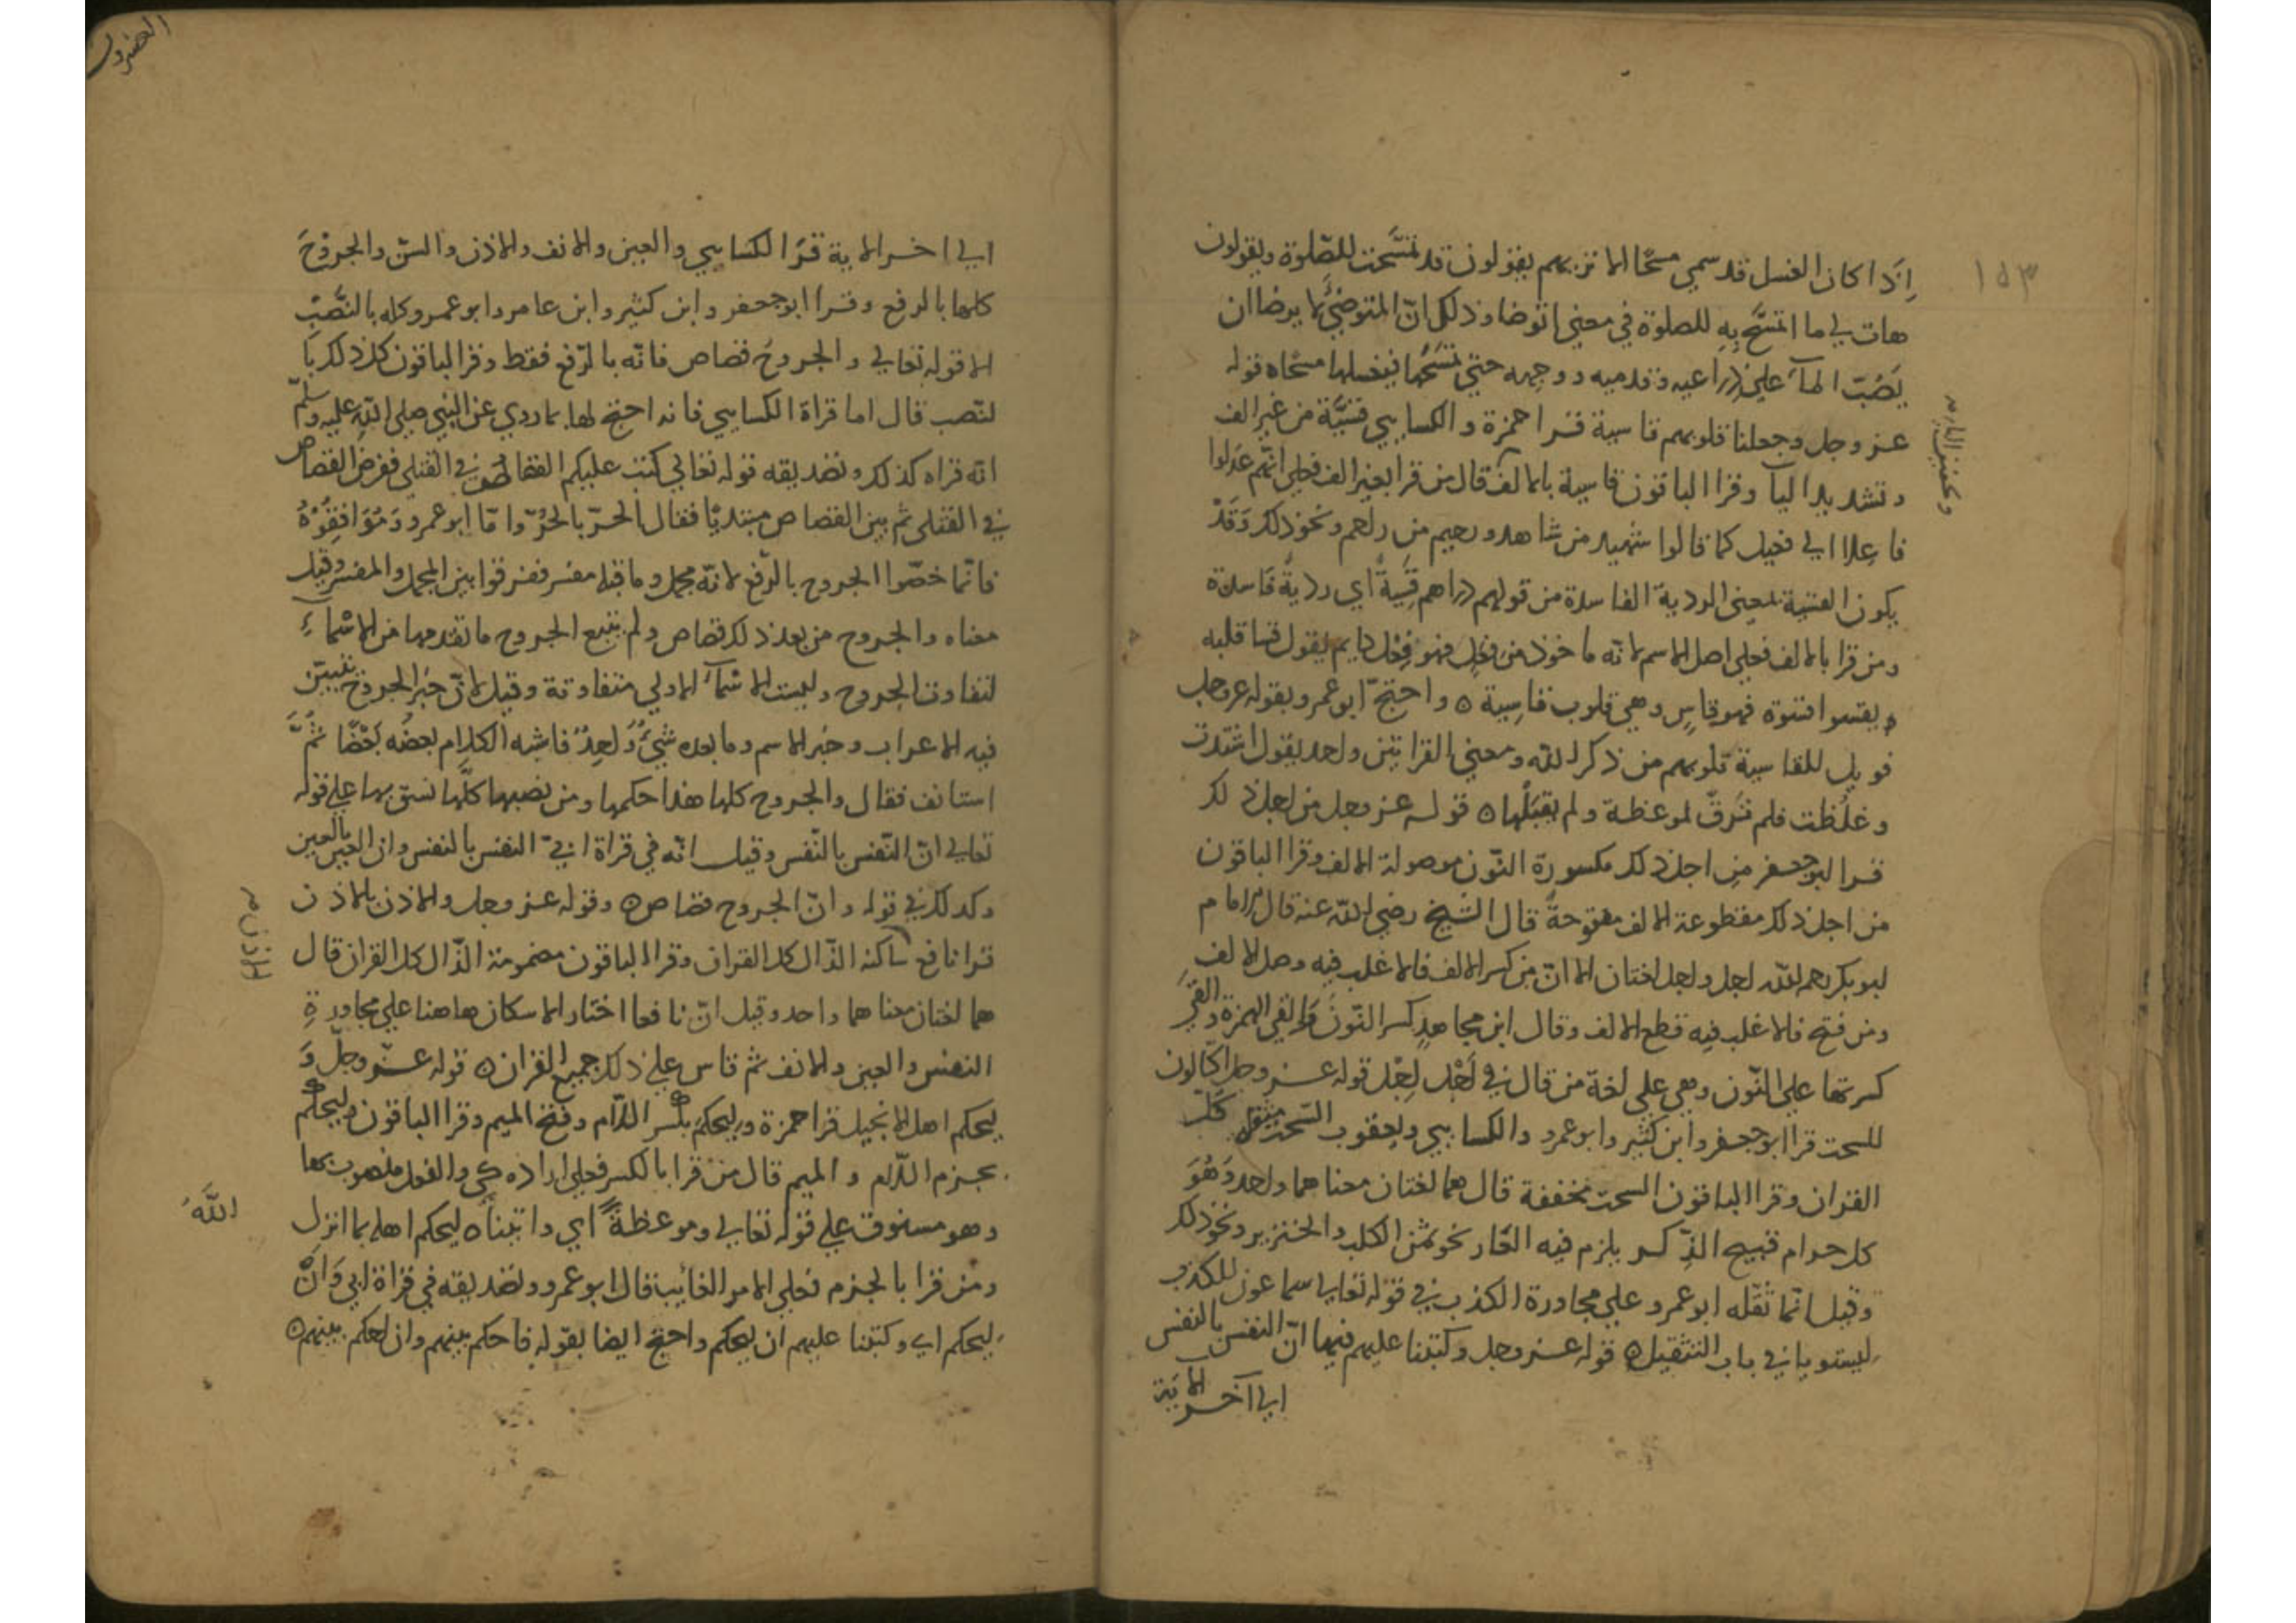 ١٥٣
اذا كان الغسل قد سمي مسحًا الا تريهم يقولون قد تمسّحت للصّلوة ويقولون
هات لي ما اتمسّح به للصلوة في معنى اتوضا وذلك انّ المتوضّي لا يرضا ان
يَصُبّ المآء علي ذراعيه وقدميه ووجهه حتي يمسَحَها فيغسلها مسحًا ه قوله
عز وجل وجعلنا قلوبهم قاسية قرا حمزة والكسايي قسيّة من غير الف
وتشديد اليآ وقرا الباقون قاسية بالالف قال من قرا بغير الف فعلي انّهم عدلوا
فاعِلا الي فعيل كما قالوا شهيد من شاهد ورحيم من راحم ونحو ذلك وَقَدْ
يكون القسية بمعنى الردية الفاسدة من قولهم دراهم قَسِيةٌ اي رديةٌ فاسدة
ومن قرا بالالف فعلي اصل الاسم لانه ماخوذ من فعل فهو فِعْل دايم يقول قسا قلبه
يقسوا قسوة فهو قاسٍ وهي قلوب قاسِية ه واحتجّ ابو عمرو بقوله عز وجل
فويل للقاسية قلوبهم من ذكر الله ومعنى القراتين واحد يقول اشتدت
وغلُظت فلم ترقّ لموعظة ولم يقبَلْها ه قوله عز وجل من اجل ذلك
قرا ابو جعفر مِن اجل ذلك مكسورة النّون موصولة الالف وقرا الباقون
من اجل ذلك مقطوعة الالف مفتوحةً قال الشيخ رضي الله عنه قال الامام
ابو بكر رحمه الله اجل واجل لغتان الا انّ من كسر الالف فالاغلب فيه وصل الالف
ومن فتح فالاغلب فيه قطع الالف وقال ابن مجاهد كسر النّون والقي الهمزة والقي
كسرتها علي النّون وهي علي لغة من قال في اَجْل اِجْل قوله عز وجل اكّالون
للسحت قرا ابو جعفر وابن كثير وابو عمرو والكسايي ويعقوب السّحت مثقل كلّ
القران وقرا الباقون السحت مخففة قال هما لغتان معناهما واحد وَهُوَ
كل حرام قبيح الذِّكر يلزم فيه العَار نحو ثمن الكلب والخنزير ونحو ذلك
وقيل انّما ثقّله ابو عمرو علي مجاورة الكذب في قوله تعالي سماعون للكذب
ليستويا في باب التثقيل ه قوله عز وجل وكتبنا عليهم فيها انّ النفس بالنفس
الي آخر الاية
الي اخر الاية قرَا الكسايي والعين والانف والاذن والسّن والجروحُ
كلها بالرفع وقرا ابو جعفر وابن كثير وابن عامر وابو عمرو كله بالنّصْبِ
الا قوله تعالي والجروحُ قصاص فانّه بالرّفع فقط وقرا الباقون كل ذلك با
لنّصب قال اما قراة الكسايي فانه احتج لها بما روي عن النّبي صلي الله عليه وسلّم
انّه قراه كذلك وتصديقه قوله تعالي كتب عليكم القصاص في القتلي ففرض القصاص
في القتلي ثم بين القصاص مبتديًا فقال الحرّ بالحُرّ وامّا ابو عمرو وَمُوَافِقُوْهُ
فانّما خصّوا الجروح بالرّفع لانّه مجمل وما قبله مفسر ففرقوا بين المجمل والمفسر وقيل
معناه والجروح من بعد ذلك قصاص ولم يتبع الجروح ما تقدمها من الاسماءِ
لتفاوت الجروح وليست الاسمآء الاولي متفاوتة وقيل لانّ خبر الجروح تبين
فيه الاعراب وخبر الاسم وما بعده شيءٌ وَاحِدٌ فاشبه الكلام بعضُه بَعْضًا ثُمَّ
استانف فقال والجروح كلها هذا حكمها ومن نصبها كلَّها نسق بها علي قوله
تعالي انّ النّفس بالنّفس وقيل انّه في قراة ابيّ النفس بالنفس وان العين بالعين
وكذلك في قوله وانّ الجروح قصاص ه وقوله عز وجل والاذن بالاذن
قرا نافع ساكنة الذّال كل القران وقرا الباقون مضمومة الذّال كل القران قال
هما لغتان معناهما واحد وقيل انّ نافعا اختار الاسكان هاهنا علي مجاورةِ
النفس والعين والانف ثم قاس علي ذلك جميع القران ه قوله عزّ وجلّ وَ
ليحكم اهل الانجيل قرا حمزة وليحكمَ بكسر اللّام وفتح الميم وقرا الباقون وليحكم
بجزم اللّام والميم قال من قرا بالكسر فعلي ارادة كي والفعل منصوب بها
وهو مسنوق علي قوله تعالي وموعظةً اي واتيناه ليحكم اهله بما انزل
الله
ومن قرا بالجزم فعلي الامر الغائب قال ابو عمرو وتصديقه في قراة ابي وَاَنْ
ليحكم اي وكتبنا عليهم ان ليحكم واحتج ايضا بقوله فاحكم بينهم وان احكم بينهم ه
الاذن